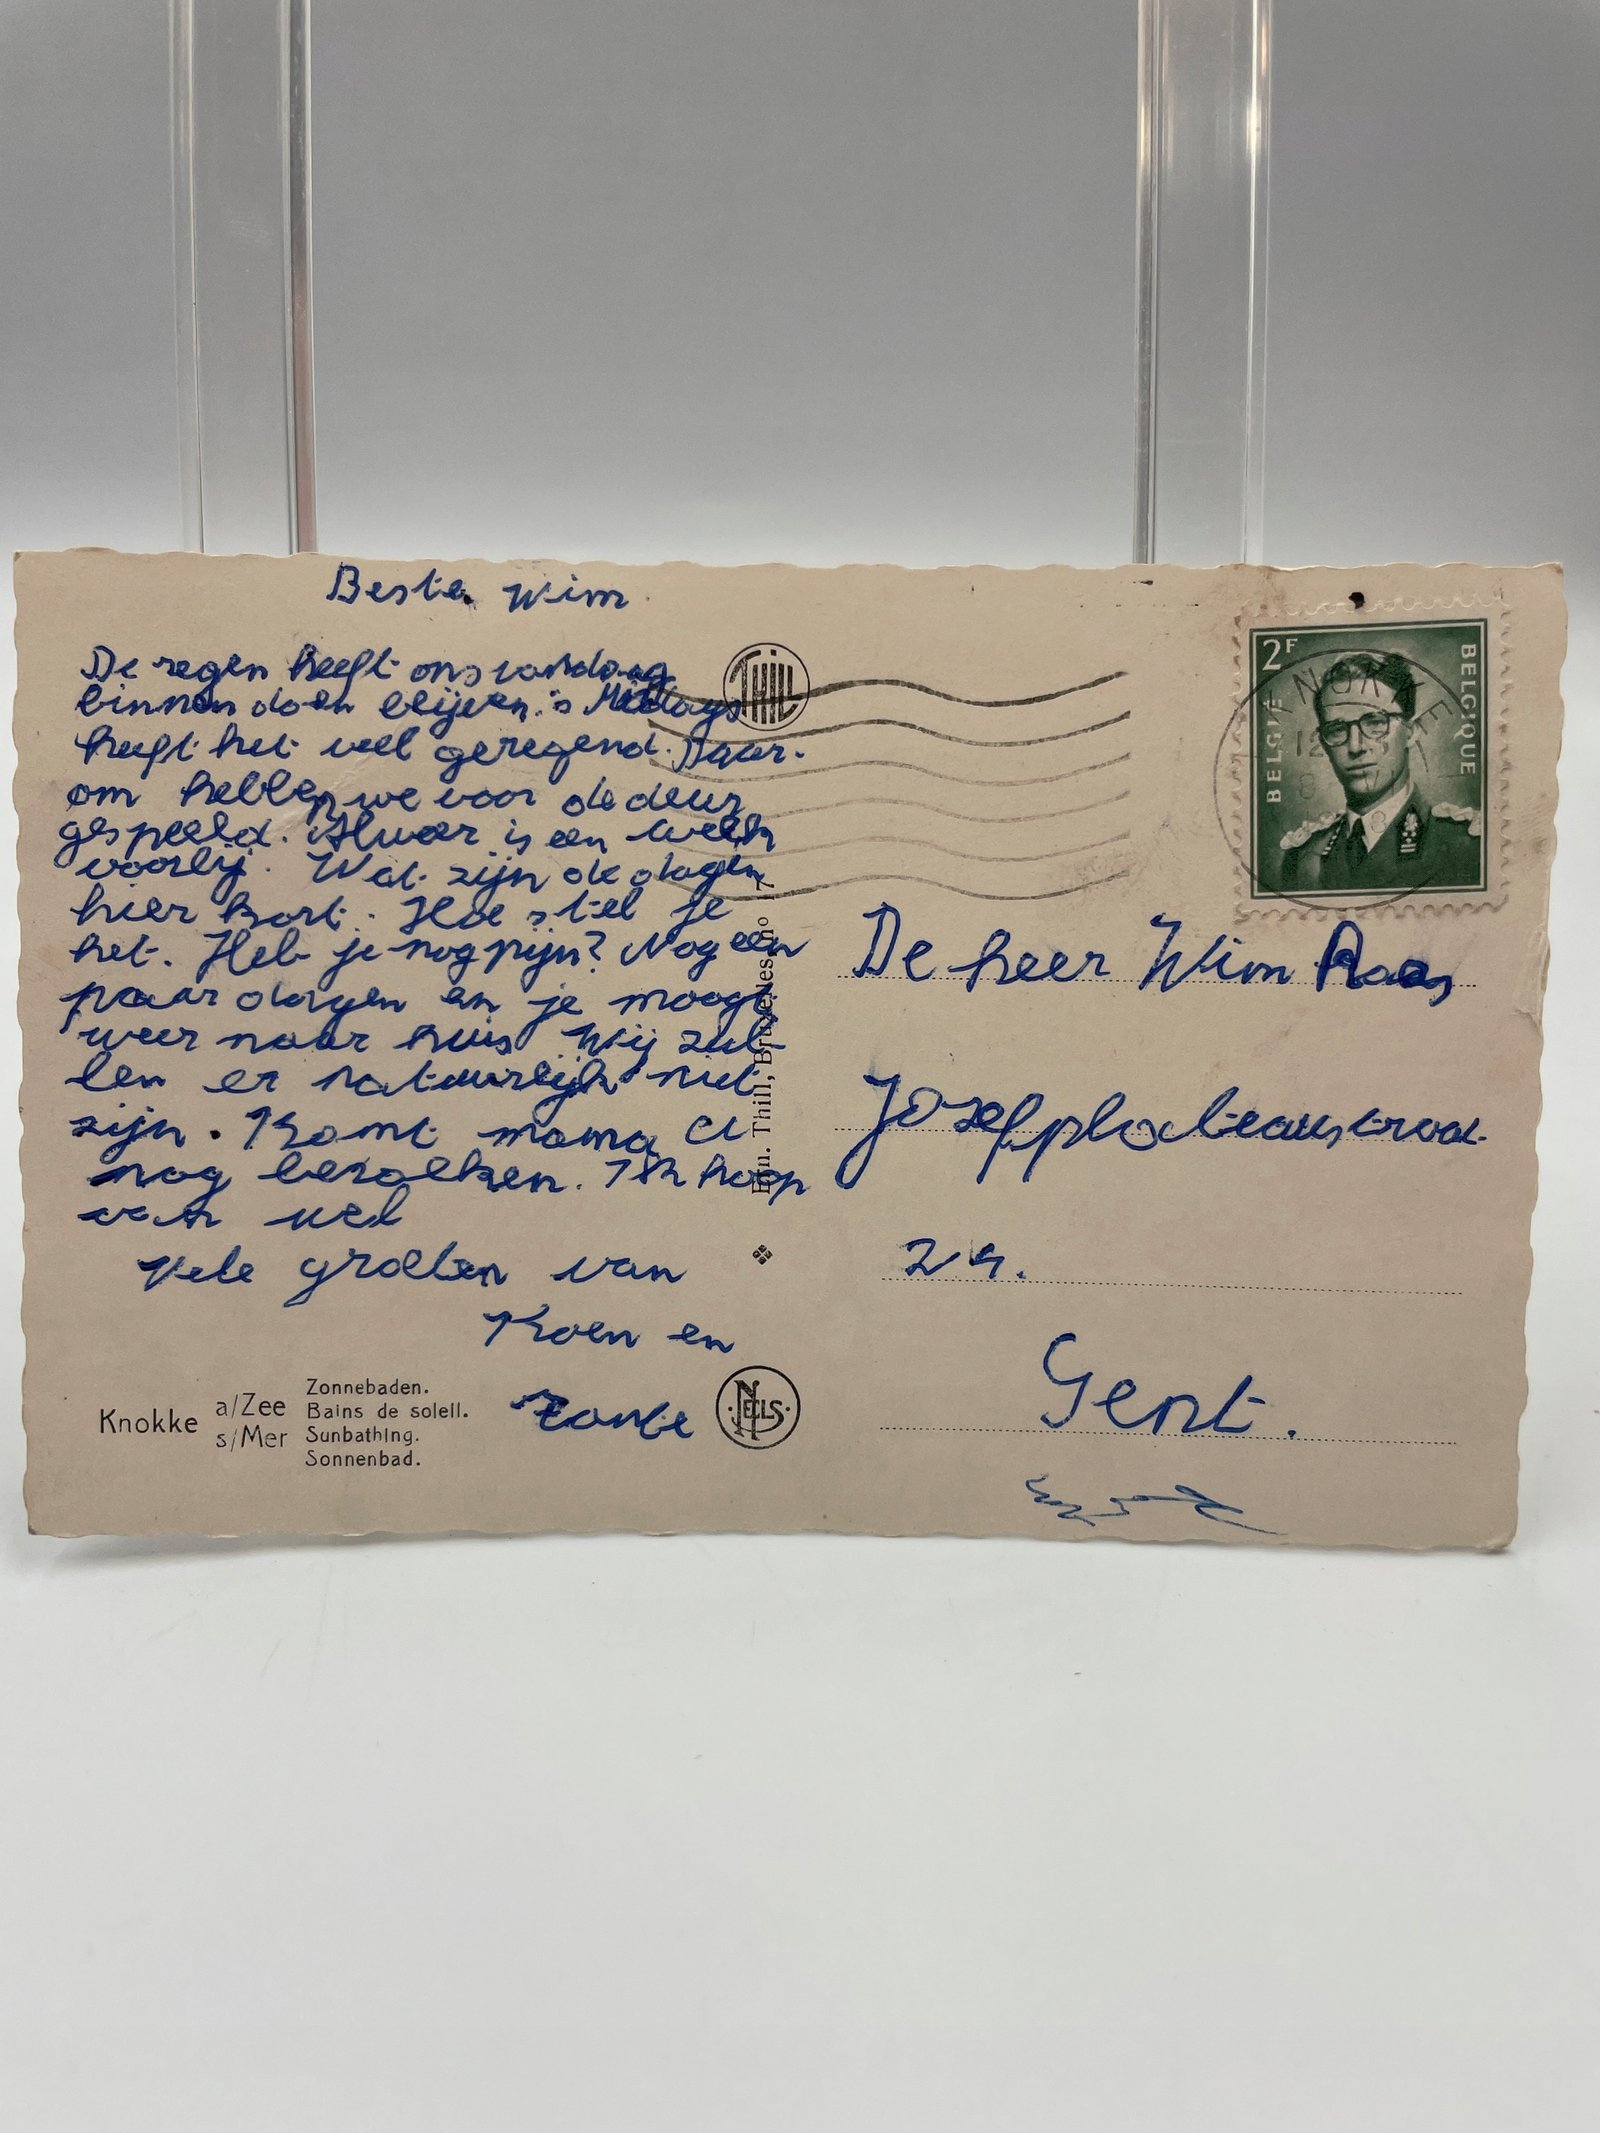 Beste Wim
De regen heeft ons vandaag
binnen doen blijven. 's Middags
heeft het veel geregend. Daar-
om hebben we voor de deur
gespeeld. Alweer is een week
voorbij. Wat zijn de dagen
hier kort. Hoe stel je
het. Heb je nog pijn? Nog een
paar dagen en je moogt
weer naar huis Wij zul-
len er natuurlijk niet
zijn. Komt mama U
nog bezoeken. Ik hoop
van wel
Vele groeten van
Koen en
THILL
Edn. Thill, Bruxelles
Knokke a/Zee s/Mer
Zonnebaden.
Bains de soleil.
Sunbathing.
Sonnenbad.
NELLS
2F
BELGIE
BELGIQUE
KNOKKE
12
8
De heer Wim
Jozefplateaustraat
24.
Gent.